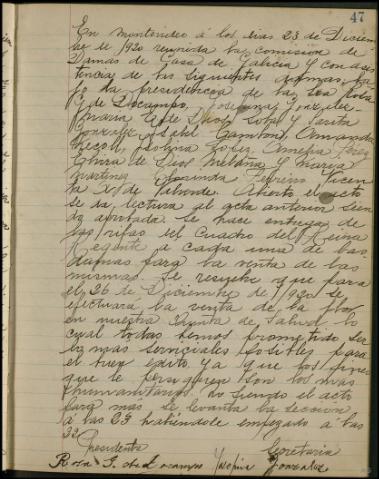 47
En Montevideo á los dias 23 de Diciem
bre de 1920 reunida la comision de
Damas de Casa de Galicia y con asis
tencia de las siguientes damas, ba
jo la presidencia de la Sra Rosa
G. de Docampo, Josefina Gonzalez
Maria
Gonzalez, Isabel Amanda
Lopez, Amelia Perez
Elvira de Dios y Maria
Martinez Florinda Ferreiro Vicen
ta de Abierto el acto
se da lectura al acta anterior sien
do aprobada. Se hace entrega de
las rifas del Cuadro del Reina
Regente a cada una de las
damas para la venta de las
mismas. Se resuelve que para
el 26 de Diciembre de 1920 se
efectuara la venta de la flor
en nuestra Quinta de Salud lo
cual todas hemos prometido ser
lo mas serviciales posibles para
el buen exito. Ya que los fines
que se persiguen son los mas
humanitarios. no siendo el acto
para mas se levanta la seccion
á las 23 habiéndole empezado a las
22
Presidenta Secretaria
Rosa G. de Docampo Josefina Gonzalez